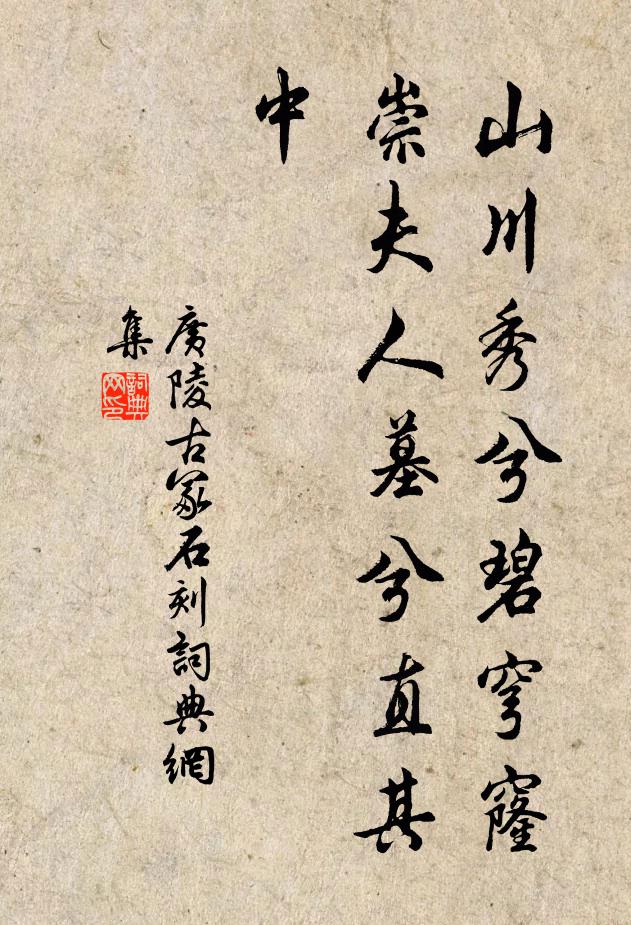 山川秀兮碧穹窿
崇夫人墓兮直其
中
廣陵古冢石刻詞典網
集
詞典
网印